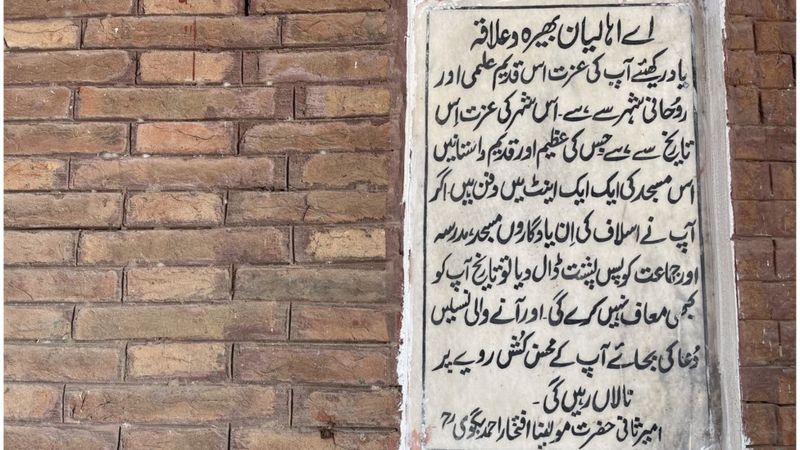 اے اہالیان بھیرہ و علاقہ
یاد رکھئے آپ کی عزت اس قدیم علمی اور
روحانی شہر سے ہے۔ اس شہر کی عزت اس
تاریخ سے ہے جس کی عظیم اور قدیم داستانیں
اس مسجد کی ایک ایک اینٹ میں دفن ہیں اگر
آپ نے اسلاف کی اِن یادگاروں مسجد، مدرسہ
اور جماعت کو پس پشت ڈال دیا تو تاریخ آپ کو
کبھی معاف نہیں کرے گی۔ اور آنے والی نسلیں
دُعا کی بجائے آپ کے محسن کُش رویے پر
نالاں رہیں گی۔
امیر ثانی حضرت مولینا افتخار احمد بگوی ؒ